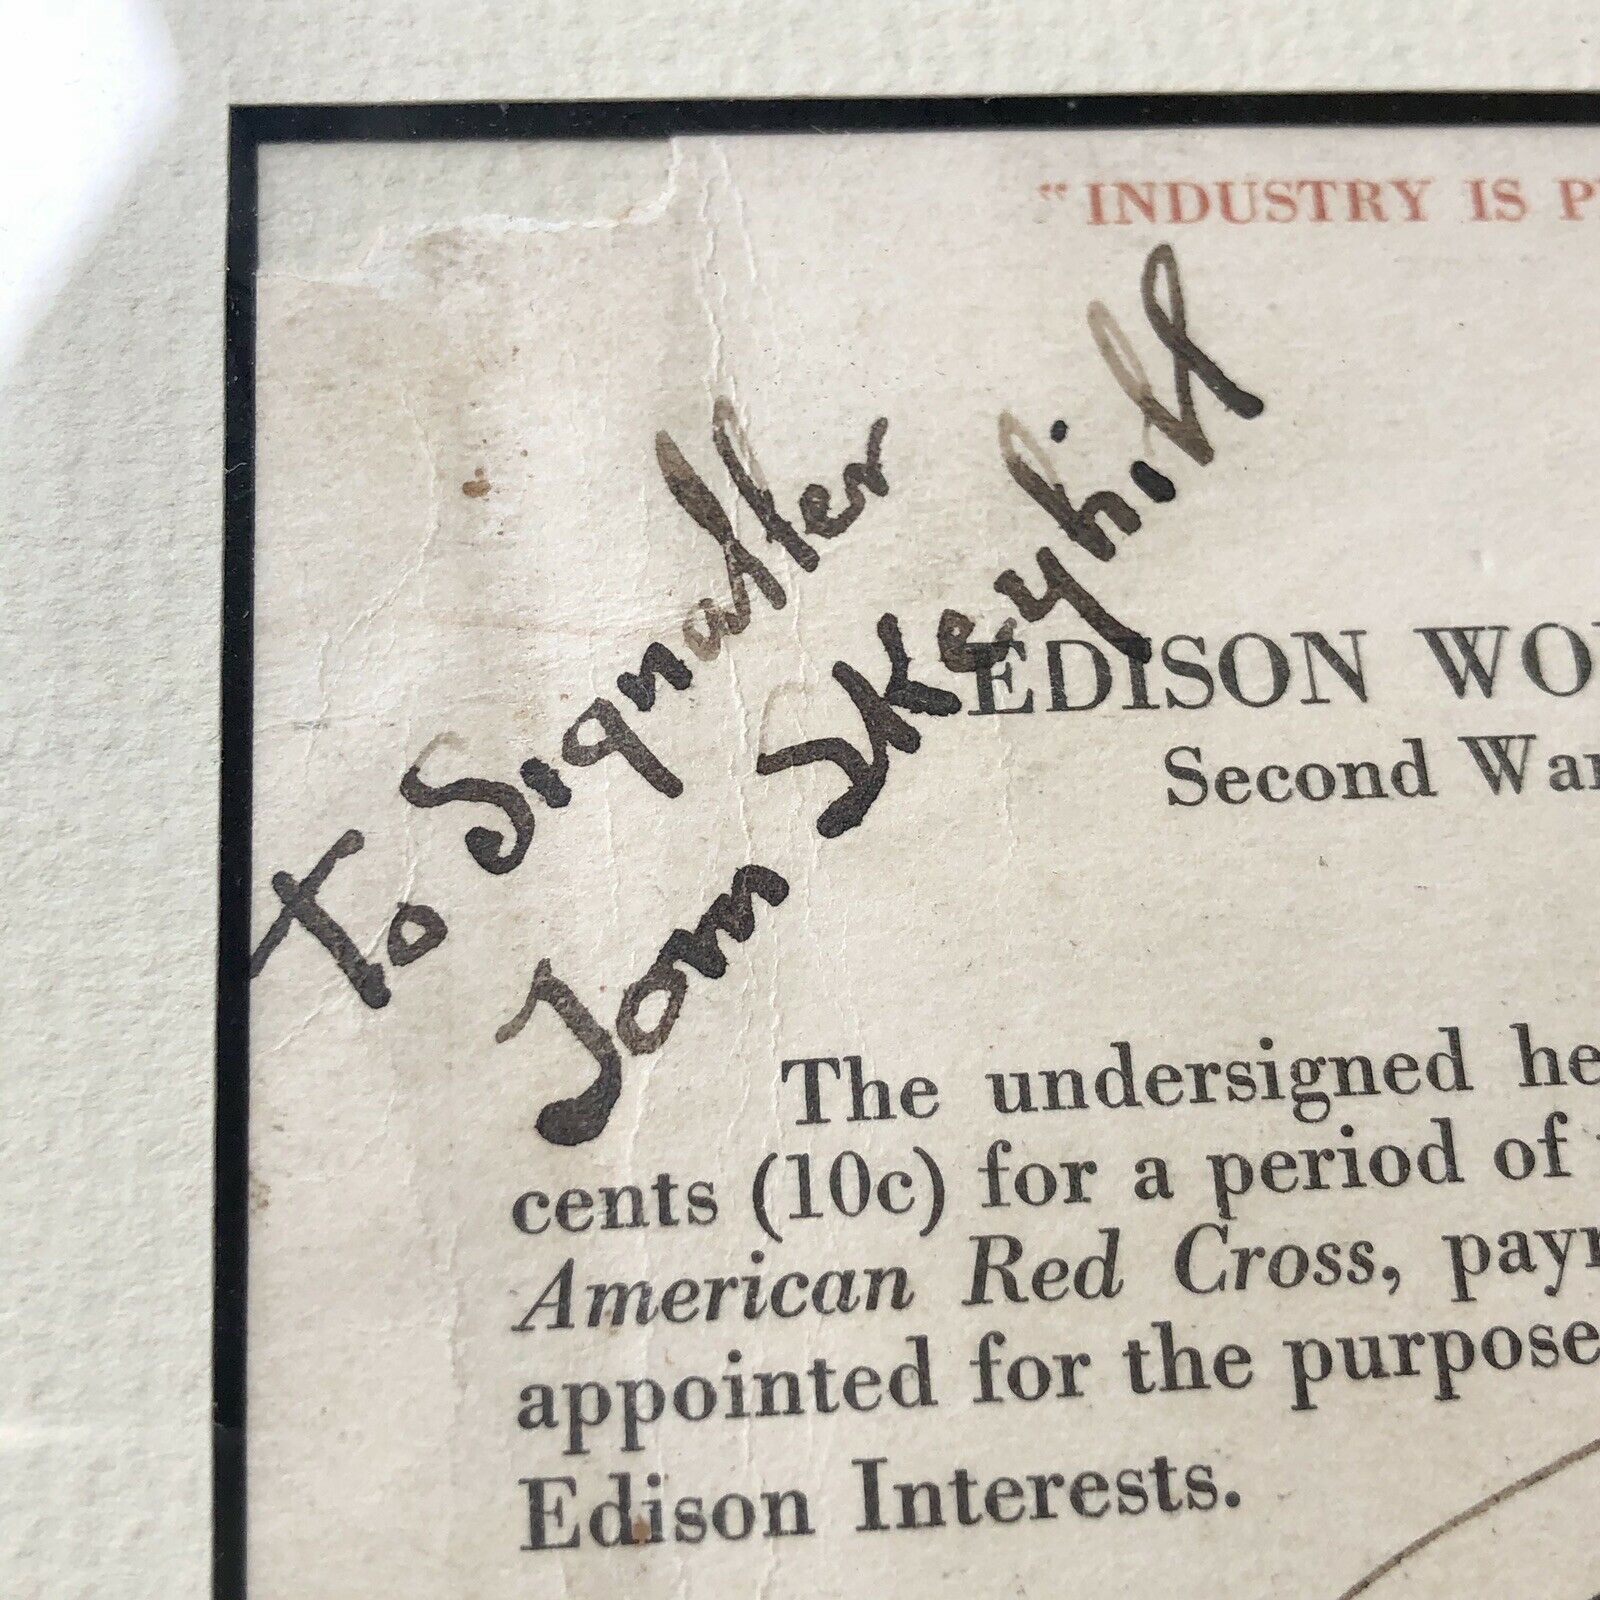 "INDUSTRY IS P
To Signaller
Tom Skeyhill
EDISON WO
Second War
The undersigned he
cents (10c) for a period of
American Red Cross, paym
appointed for the purpose
Edison Interests.